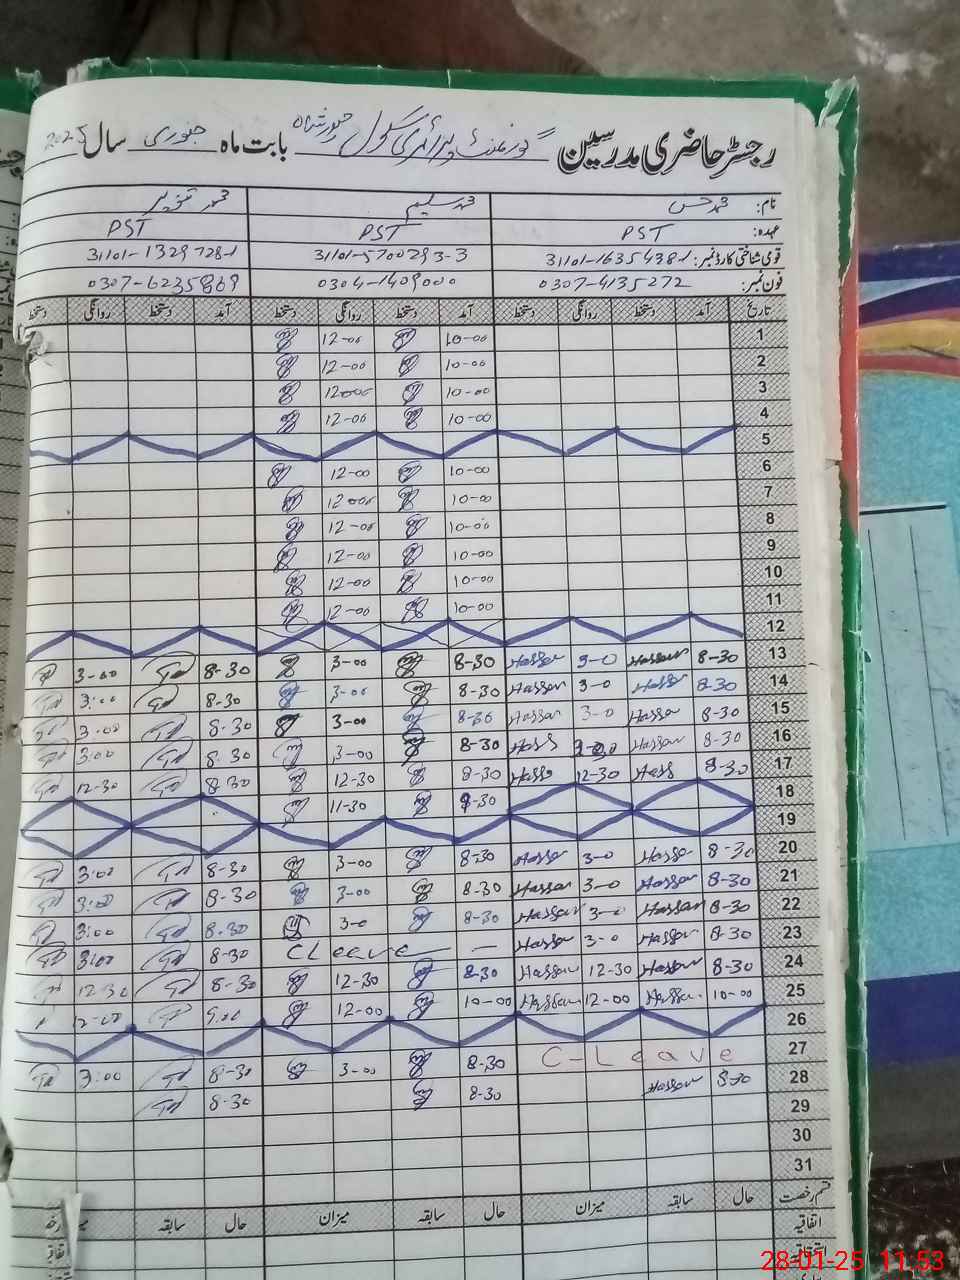 رجسٹر حاضری مدرسین گورنمنٹ پرائمری سکول بابت ماہ جنوری سال 2025
نام: محمد حسن محمد سلیم محمد تنویر
عہدہ: PST PST PST
قومی شناختی کارڈ نمبر: 31101-16354381 31101-5700293-3 31101-13297281
فون نمبر: 0307-4135272 0304-1409000 0307-6235869
تاریخ آمد دستخط روانگی دستخط آمد دستخط روانگی دستخط آمد دستخط روانگی دستخط
1 10-00 12-00
2 10-00 12-00
3 10-00 12-00
4 10-00 12-00
5
6 10-00 12-00
7 10-00 12-00
8 10-00 12-00
9 10-00 12-00
10 10-00 12-00
11 10-00 12-00
12
13 8-30 Hassan 3-0 Hassan 8-30 3-00 8-30 3-00
14 8-30 Hassan 3-0 Hassan 8-30 3-00 8-30 3:00
15 8-30 Hassan 3-0 Hassan 8-30 3-00 8-30 3:00
16 8-30 Hassan 8-30 3-00 8-30 3:00
17 8-30 12-30 8-30 12-30 8-30 12-30
18 11-30
19
20 8-30 Hassan 3-0 Hassan 8-30 3-00 8-30 3:00
21 8-30 Hassan 3-0 Hassan 8-30 3-00 8-30 3:00
22 8-30 Hassan 3-0 Hassan 8-30 3-0 8-30 3:00
23 8-30 Hassan 3-0 Hassan C Leave 8-30 3:00
24 8-30 Hassan 12-30 Hassan 8-30 12-30 8-30 12-30
25 10-00 Hassan 12-00 Hassan 10-00 12-00 9:00 12-00
26
27 C-Leave 8-30 3-00 8-30 3:00
28 8-30 Hassan 8-30 8-30
29
30
31
قسم رخصت حال سابقہ میزان حال سابقہ میزان حال سابقہ
اتفاقیہ
28-01-25 11:53